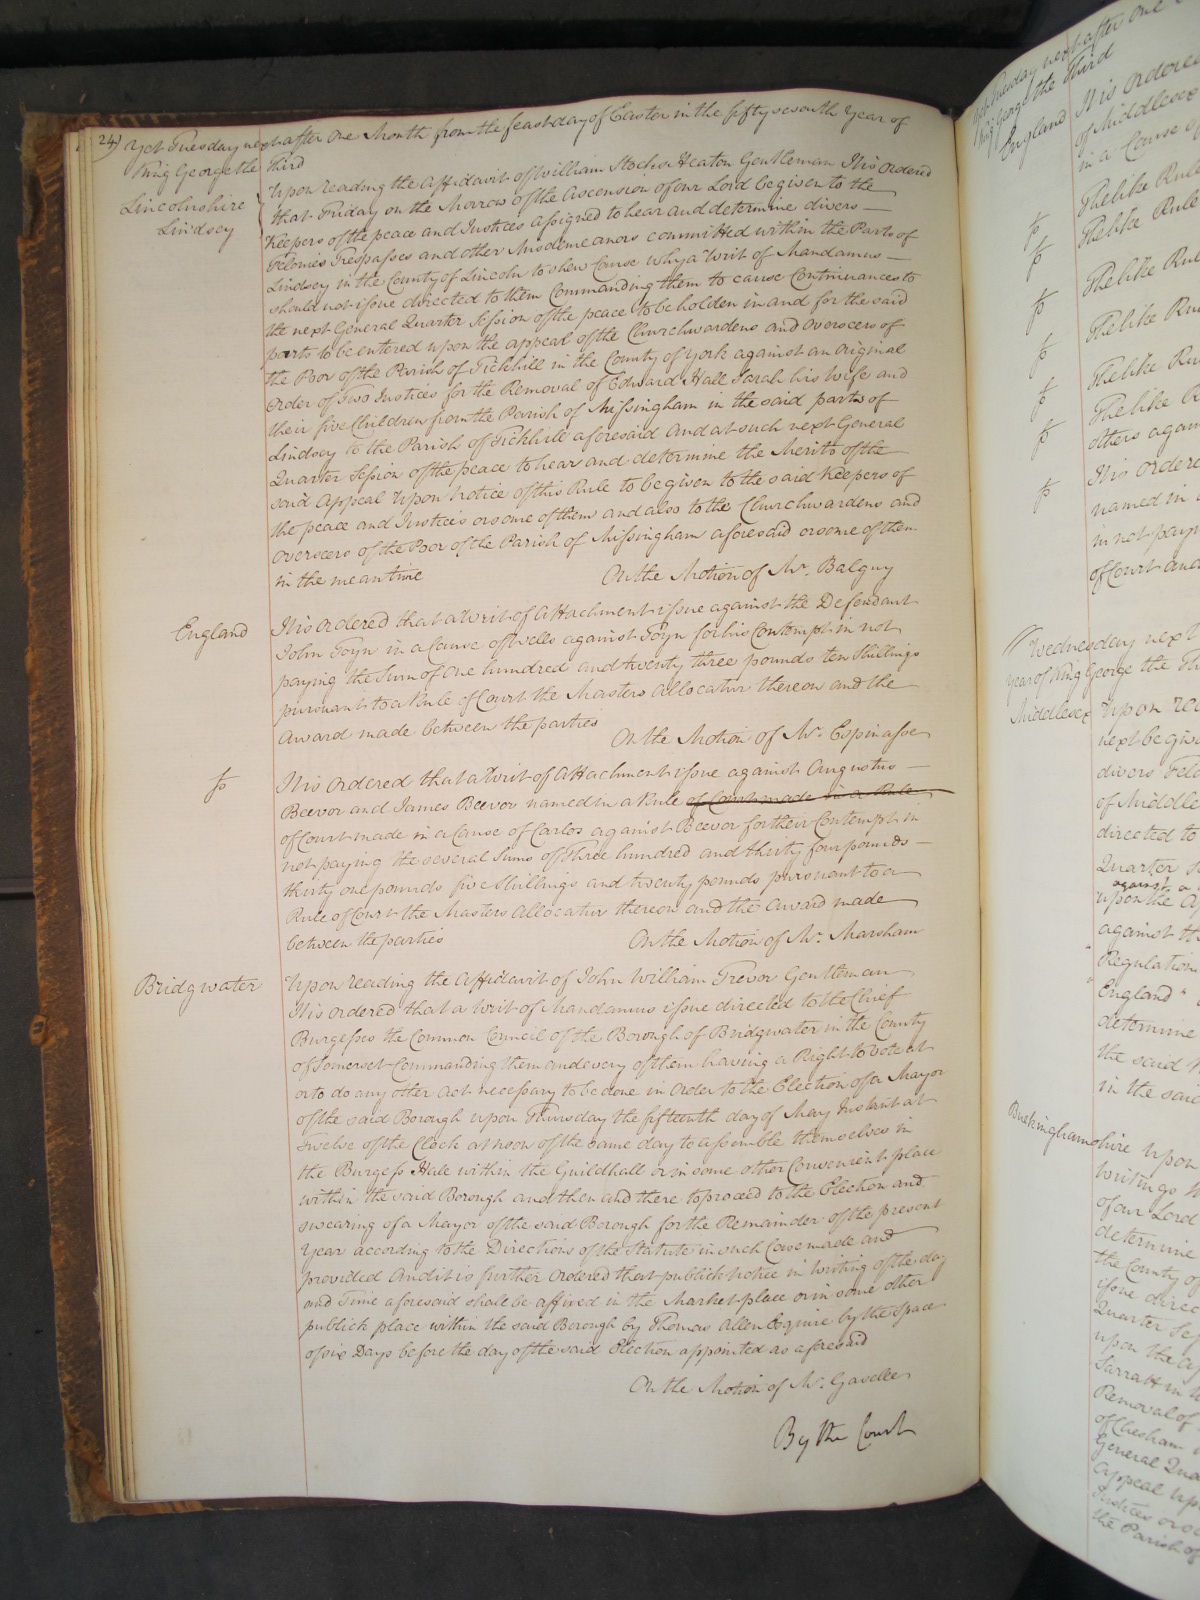 24)
Yet Tuesday next after One Month from the feast day of Easter in the fifty seventh Year of
King George the third
Lincolnshire
Lindsey
Upon reading the Affidavit of William Heaton Gentleman It is Ordered
that Friday on the Morrow of the Ascension of our Lord be given to the
Keepers of the peace and Justices assigned to hear and determine divers
Felonies Trespasses and other Misdemeanors committed within the Parts of
Lindsey in the County of Lincoln to shew Cause why a Writ of Mandamus
should not issue directed to them Commanding them to cause Continuances to
the next General Quarter Session of the peace to be holden in and for the said
parts to be entered upon the appeal of the Churchwardens and Overseers of
the Poor of the Parish of Tickhill in the County of York against an Original
Order of Two Justices for the Removal of Edward Hall Sarah his Wife and
their five Children from the Parish of Missingham in the said parts of
Lindsey to the Parish of Tickhill aforesaid And at such next General
Quarter Session of the peace to hear and determine the Merits of the
said Appeal Upon Notice of this Rule to be given to the said Keepers of
the peace and Justices or some of them and also to the Churchwardens and
Overseers of the Poor of the Parish of Missingham aforesaid or some of them
in the mean time
On the Motion of Mr. Balguy
England
It is Ordered that a Writ of Attachment issue against the Defendant
John Foyn in a Cause of Wells against Foyn for his Contempt in not
paying the Sum of One hundred and twenty three pounds ten Shillings
pursuant to a Rule of Court the Masters Allocatur thereon and the
Award made between the parties
On the Motion of Mr. Espinasse
It is Ordered that a Writ of Attachment issue against Augustus
Beevor and James Beevor named in a Rule of Court made in a Rule
of Court made in a Cause of Carlos against Beevor for their Contempt in
not paying the several Sums of Three hundred and thirty four pounds
thirty one pounds five Shillings and twenty pounds pursuant to a
Rule of Court the Masters Allocatur thereon and the Award made
between the parties
On the Motion of Mr. Marsham
Bridgwater
Upon reading the Affidavit of John William Trevor Gentleman
It is ordered that a Writ of Mandamus issue directed to the Chief
Burgesses the Common Council of the Borough of Bridgwater in the County
of Somerset Commanding them and every of them having a Right to vote at
or to do any other Act necessary to be done in Order to the Election of a Mayor
of the said Borough upon Thursday the fifteenth day of May Instant at
Twelve of the Clock at noon of the same day to assemble themselves in
the Burgess Hall within the Guildhall or in some other Convenient place
within the said Borough and then and there to proceed to the Election and
swearing of a Mayor of the said Borough for the Remainder of the present
Year according to the Directions of the Statute in such Case made and
provided And it is further Ordered that publick Notice in Writing of the day
and Time aforesaid shall be affixed in the Market place or in some other
publick place within the said Borough by Thomas Allen Esquire by the Space
of six Days before the day of the said Election appointed as aforesaid
On the Motion of Mr. Gaselee
By the Court
King George the Third
England
It is Ordered
of Middlesex
in a Cause of
The like Rule
The like Rule
The like Rule
The like Rule
The like Rule
The like
others again
It is Ordered
named in
in not payin
of Court and
Wednesday next
Year of King George the Th
Middlesex Upon rea
next be give
divers Felo
of Middle
directed to
Quarter
against a
upon the
against th
Regulation
England"
determine
the said
in the said
Buckinghamshire Upon
Writings
of our Lord
determine
the County of
issue direc
Quarter Se
upon the
Sarratt in
Removal of
of Chesham
General Qua
Appeal up
Justices or
the Parish of